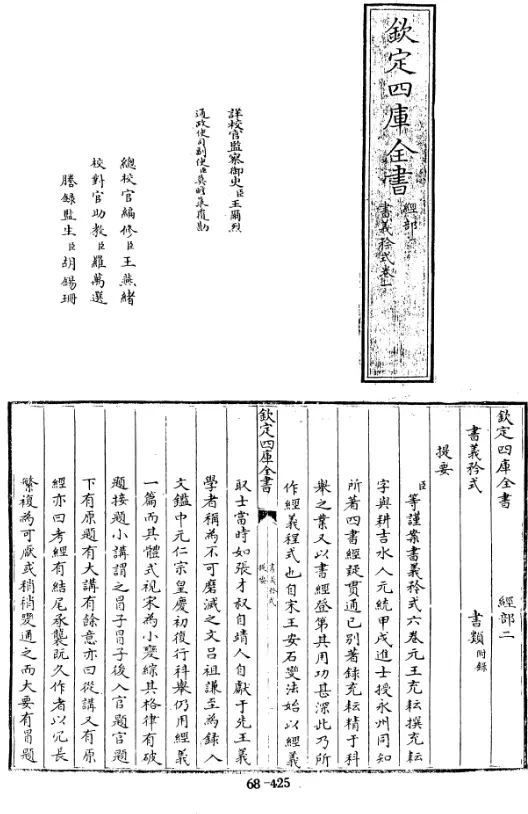 欽定四庫全書
經部
書義矜式卷一
詳校官監察御史臣王爾烈
通政使司副使臣莫瞻菉覆勘
總校官編修臣王燕緒
校對官助教臣羅萬選
謄錄監生臣胡錫珊
欽定四庫全書
經部二
書義矜式
書類附錄
提要
臣等謹案書義矜式六卷元王充耘撰充耘
字與耕吉水人元統甲戌進士授永州同知
所著四書經疑貫通已別著錄充耘精于科
舉之業又以書經登第其用功甚深此乃所
作經義程式也自宋王安石變法始以經義
欽定四庫全書
書義矜式
提要
取士當時如張才叔自靖人自獻于先王義
學者稱為不可磨滅之文呂祖謙至為錄入
文鑑中元仁宗皇慶初復行科舉仍用經義
一篇而其體式視宋為小變綜其格律有破
題接題小講謂之冒子冒子後入官題官題
下有原題有大講有餘意亦曰從講又有原
經亦曰考經有結尾承襲既久作者以冗長
繁複為可厭或稍稍變通之而大要有冒題
68-425